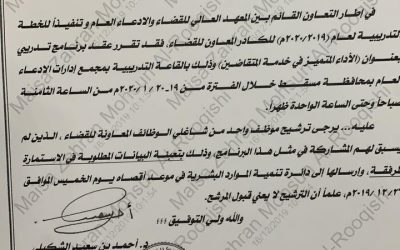 في إطار التعاون القائم بين المعهد العالي للقضاء والادعاء العام و تنفيذاً للخطة
التدريبية لعام (٢٠١٩/٢٠٢٠م) للكادر المعاون للقضاء، فقد تقرر عقد برنامج تدريبي
بعنوان (الأداء المتميز في خدمة المتقاضين) وذلك بالقاعة التدريبية بمجمع إدارات الادعاء
العام بمحافظة مسقط خلال الفترة من ١٩-٢٠٢٠/١/٢٠م من الساعة الثامنة
صباحاً وحتى الساعة الواحدة ظهراً.
عليه... يرجى ترشيح موظف واحد من شاغلي الوظائف المعاونة للقضاء، الذين لم
يسبق لهم المشاركة في مثل هذا البرنامج، وذلك بتعبئة البيانات المطلوبة في الاستمارة
المرفقة، وإرسالها إلى دائرة تنمية الموارد البشرية في موعد أقصاه يوم الخميس الموافق
٢٠١٩/١٢/٢٦م، علماً أن الترشيح لا يعني قبول المرشح.
والله ولي التوفيق ،،،
د. أحمد بن سعيد الشكيلي